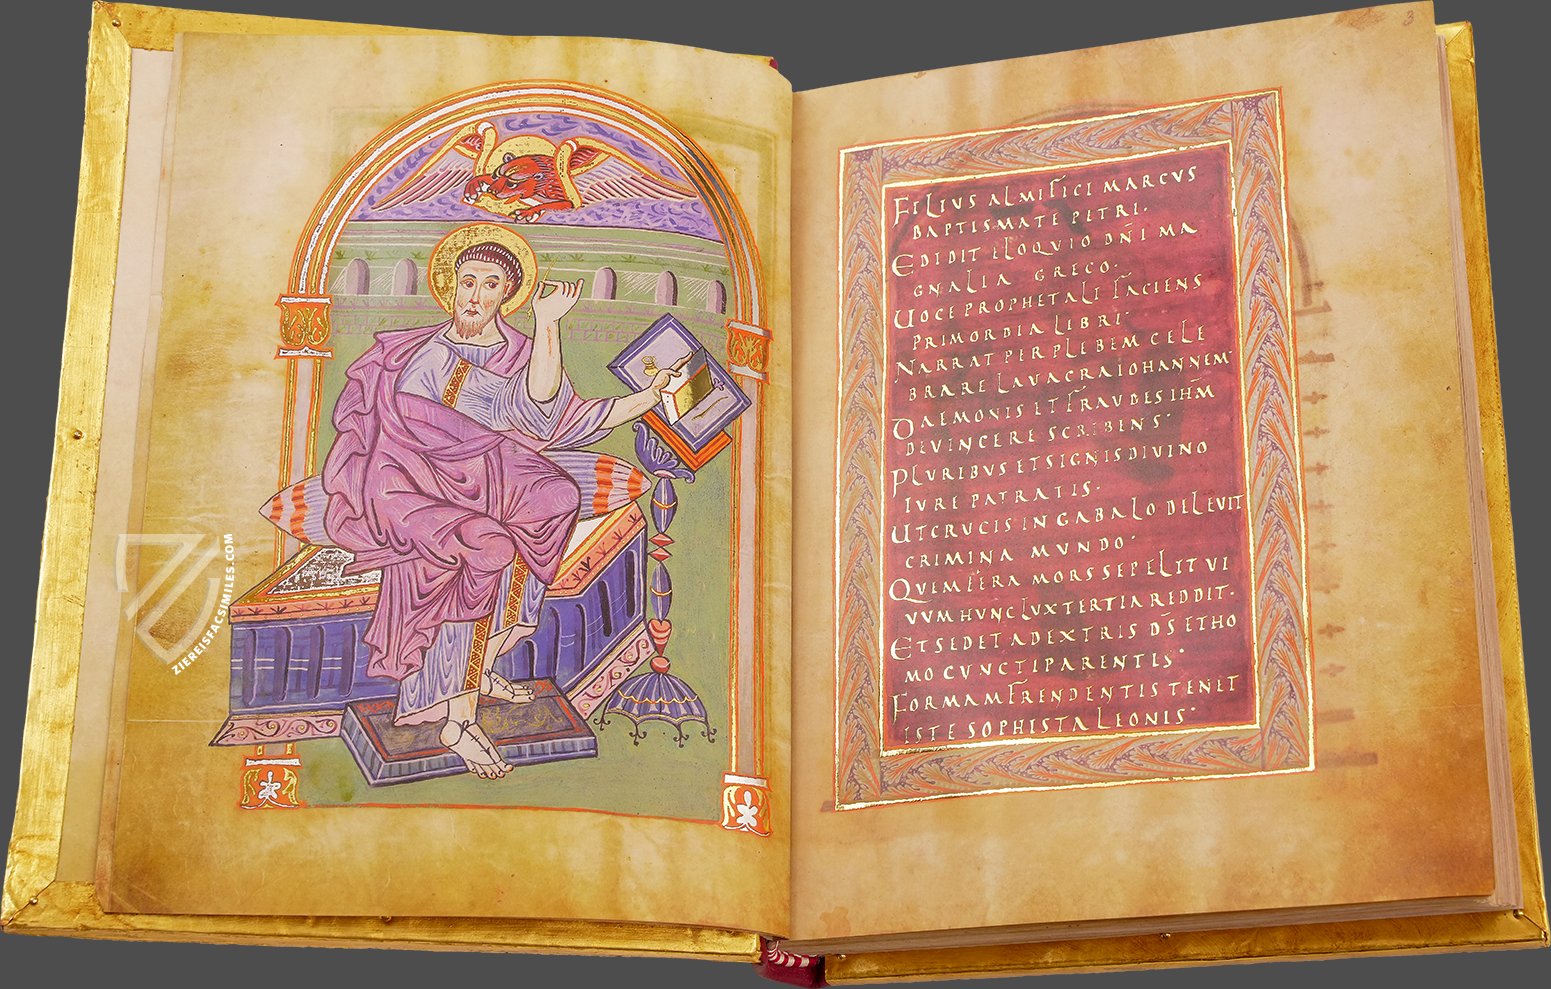 ZIEREISFACSIMILES.COM
3
FILIUS ALMIFICI MARCVS
BAPTISMATE PETRI·
EDIDIT ELOQVIO DÑI MA
GNALIA GRECO·
UOCE PROPHETALI FACIENS
PRIMORDIA LIBRI·
NARRAT PER PLEBEM CELE
BRARE LAVACRA IOHANNEM·
DAEMONIS ET FRAUDES IHM
DEVINCERE SCRIBENS·
PLURIBVS ET SIGNIS DIVINO
IVRE PATRATIS·
UT CRUCIS IN GABALO DELEVIT
CRIMINA MVNDO·
QVEM FERA MORS SEPELIT VI
VVM HUNC LVX TERTIA REDDIT·
ET SEDET AD EXTRIS DS ET HO
MO CVNCTIPARENTIS·
FORMAM FRENDENTIS TENET
ISTE SOPHISTA LEONIS·